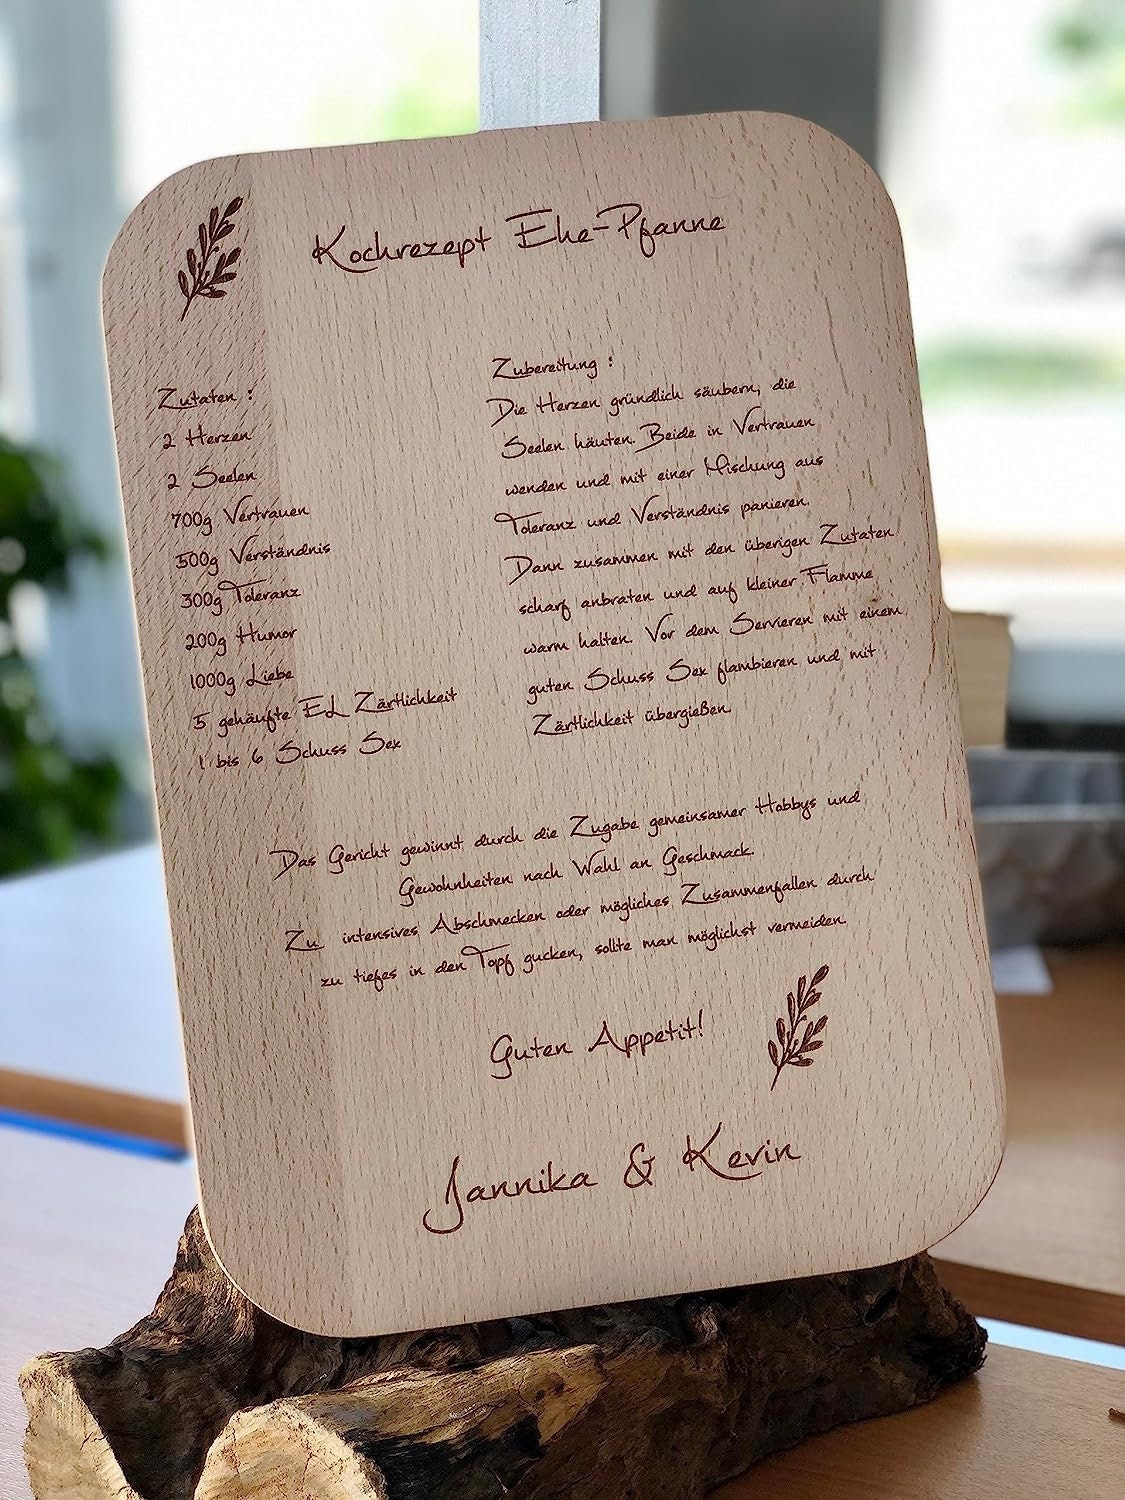 Kochrezept Ehe-Pfanne
Zutaten :
2 Herzen
2 Seelen
700g Vertrauen
500g Verständnis
300g Toleranz
200g Humor
1000g Liebe
5 gehäufte EL Zärtlichkeit
1 bis 6 Schuss Sex
Zubereitung :
Die Herzen gründlich säubern, die
Seelen häuten. Beide in Vertrauen
wenden und mit einer Mischung aus
Toleranz und Verständnis panieren.
Dann zusammen mit den überigen Zutaten
scharf anbraten und auf kleiner Flamme
warm halten. Vor dem Servieren mit einem
guten Schuss Sex flambieren und mit
Zärtlichkeit übergießen.
Das Gericht gewinnt durch die Zugabe gemeinsamer Hobbys und
Gewohnheiten nach Wahl an Geschmack.
Zu intensives Abschmecken oder mögliches Zusammenfallen durch
zu tiefes in den Topf gucken, sollte man möglichst vermeiden.
Guten Appetit!
Jannika & Kevin